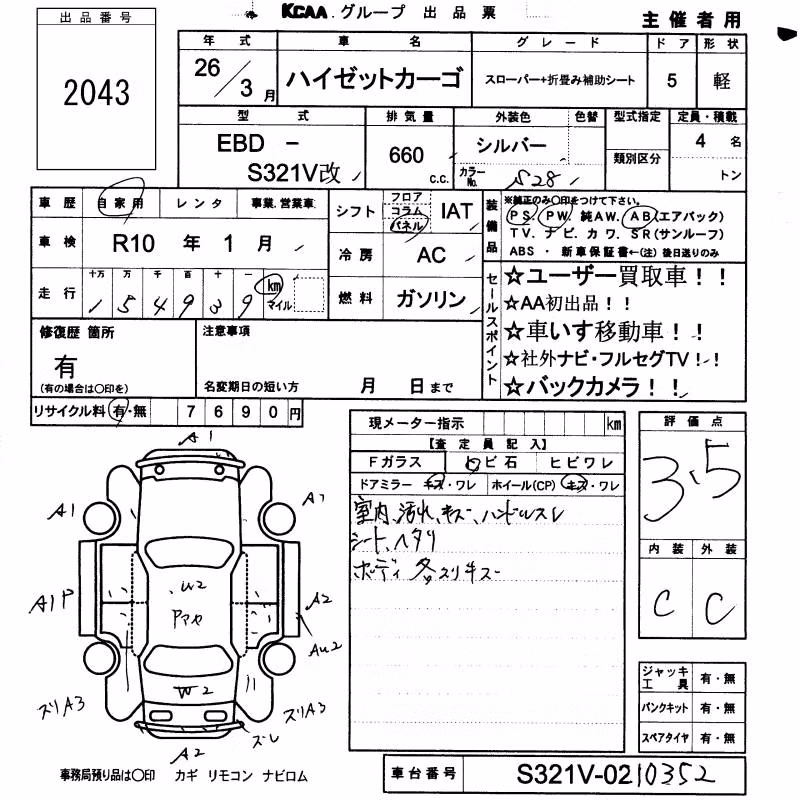 KCAA.グループ 出品票
主催者用
出品番号
2043
年式 車名 グレード ドア 形状
26/3月 ハイゼットカーゴ スローパー+折畳み補助シート 5 軽
型式 排気量 外装色 色替 型式指定 定員・積載
EBD - S321V改 660 c.c. シルバー 4名
カラーNo. S28 類別区分 トン
車歴 自家用 レンタ 事業.営業車
シフト フロア コラム パネル IAT
車検 R10年1月
冷房 AC
走行 十万 万 千 百 十 一
154939 km マイル
燃料 ガソリン
装備品 ※純正のみ〇印をつけて下さい。
PS. PW. 純AW. AB(エアバック)
TV. ナビ. カワ. SR(サンルーフ)
ABS ・ 新車保証書←(注) 後日送りのみ
セールスポイント
☆ユーザー買取車!!
☆AA初出品!!
☆車いす移動車!!
☆社外ナビ・フルセグTV!!
☆バックカメラ!!
修復歴 箇所
有
(有の場合は〇印を)
注意事項
名変期日の短い方 月 日まで
リサイクル料 有・無 7690円
現メーター指示 km
【査定員記入】
Fガラス トビ石 ヒビワレ
ドアミラー キズ・ワレ ホイール(CP) キズ・ワレ
室内、汚れ、キズー、ハンドルスレ
シート、ヘタリ
ボディ 各スリキズー
評価点
3.5
内装 外装
C C
A1
A1 A1
A1P A2
AU2
U2
W2
ズリA3 ズリA3
A2 ズレ
ジャッキ工具 有・無
パンクキット 有・無
スペアタイヤ 有・無
事務局預り品は〇印 カギ リモコン ナビロム
車台番号 S321V-0210352